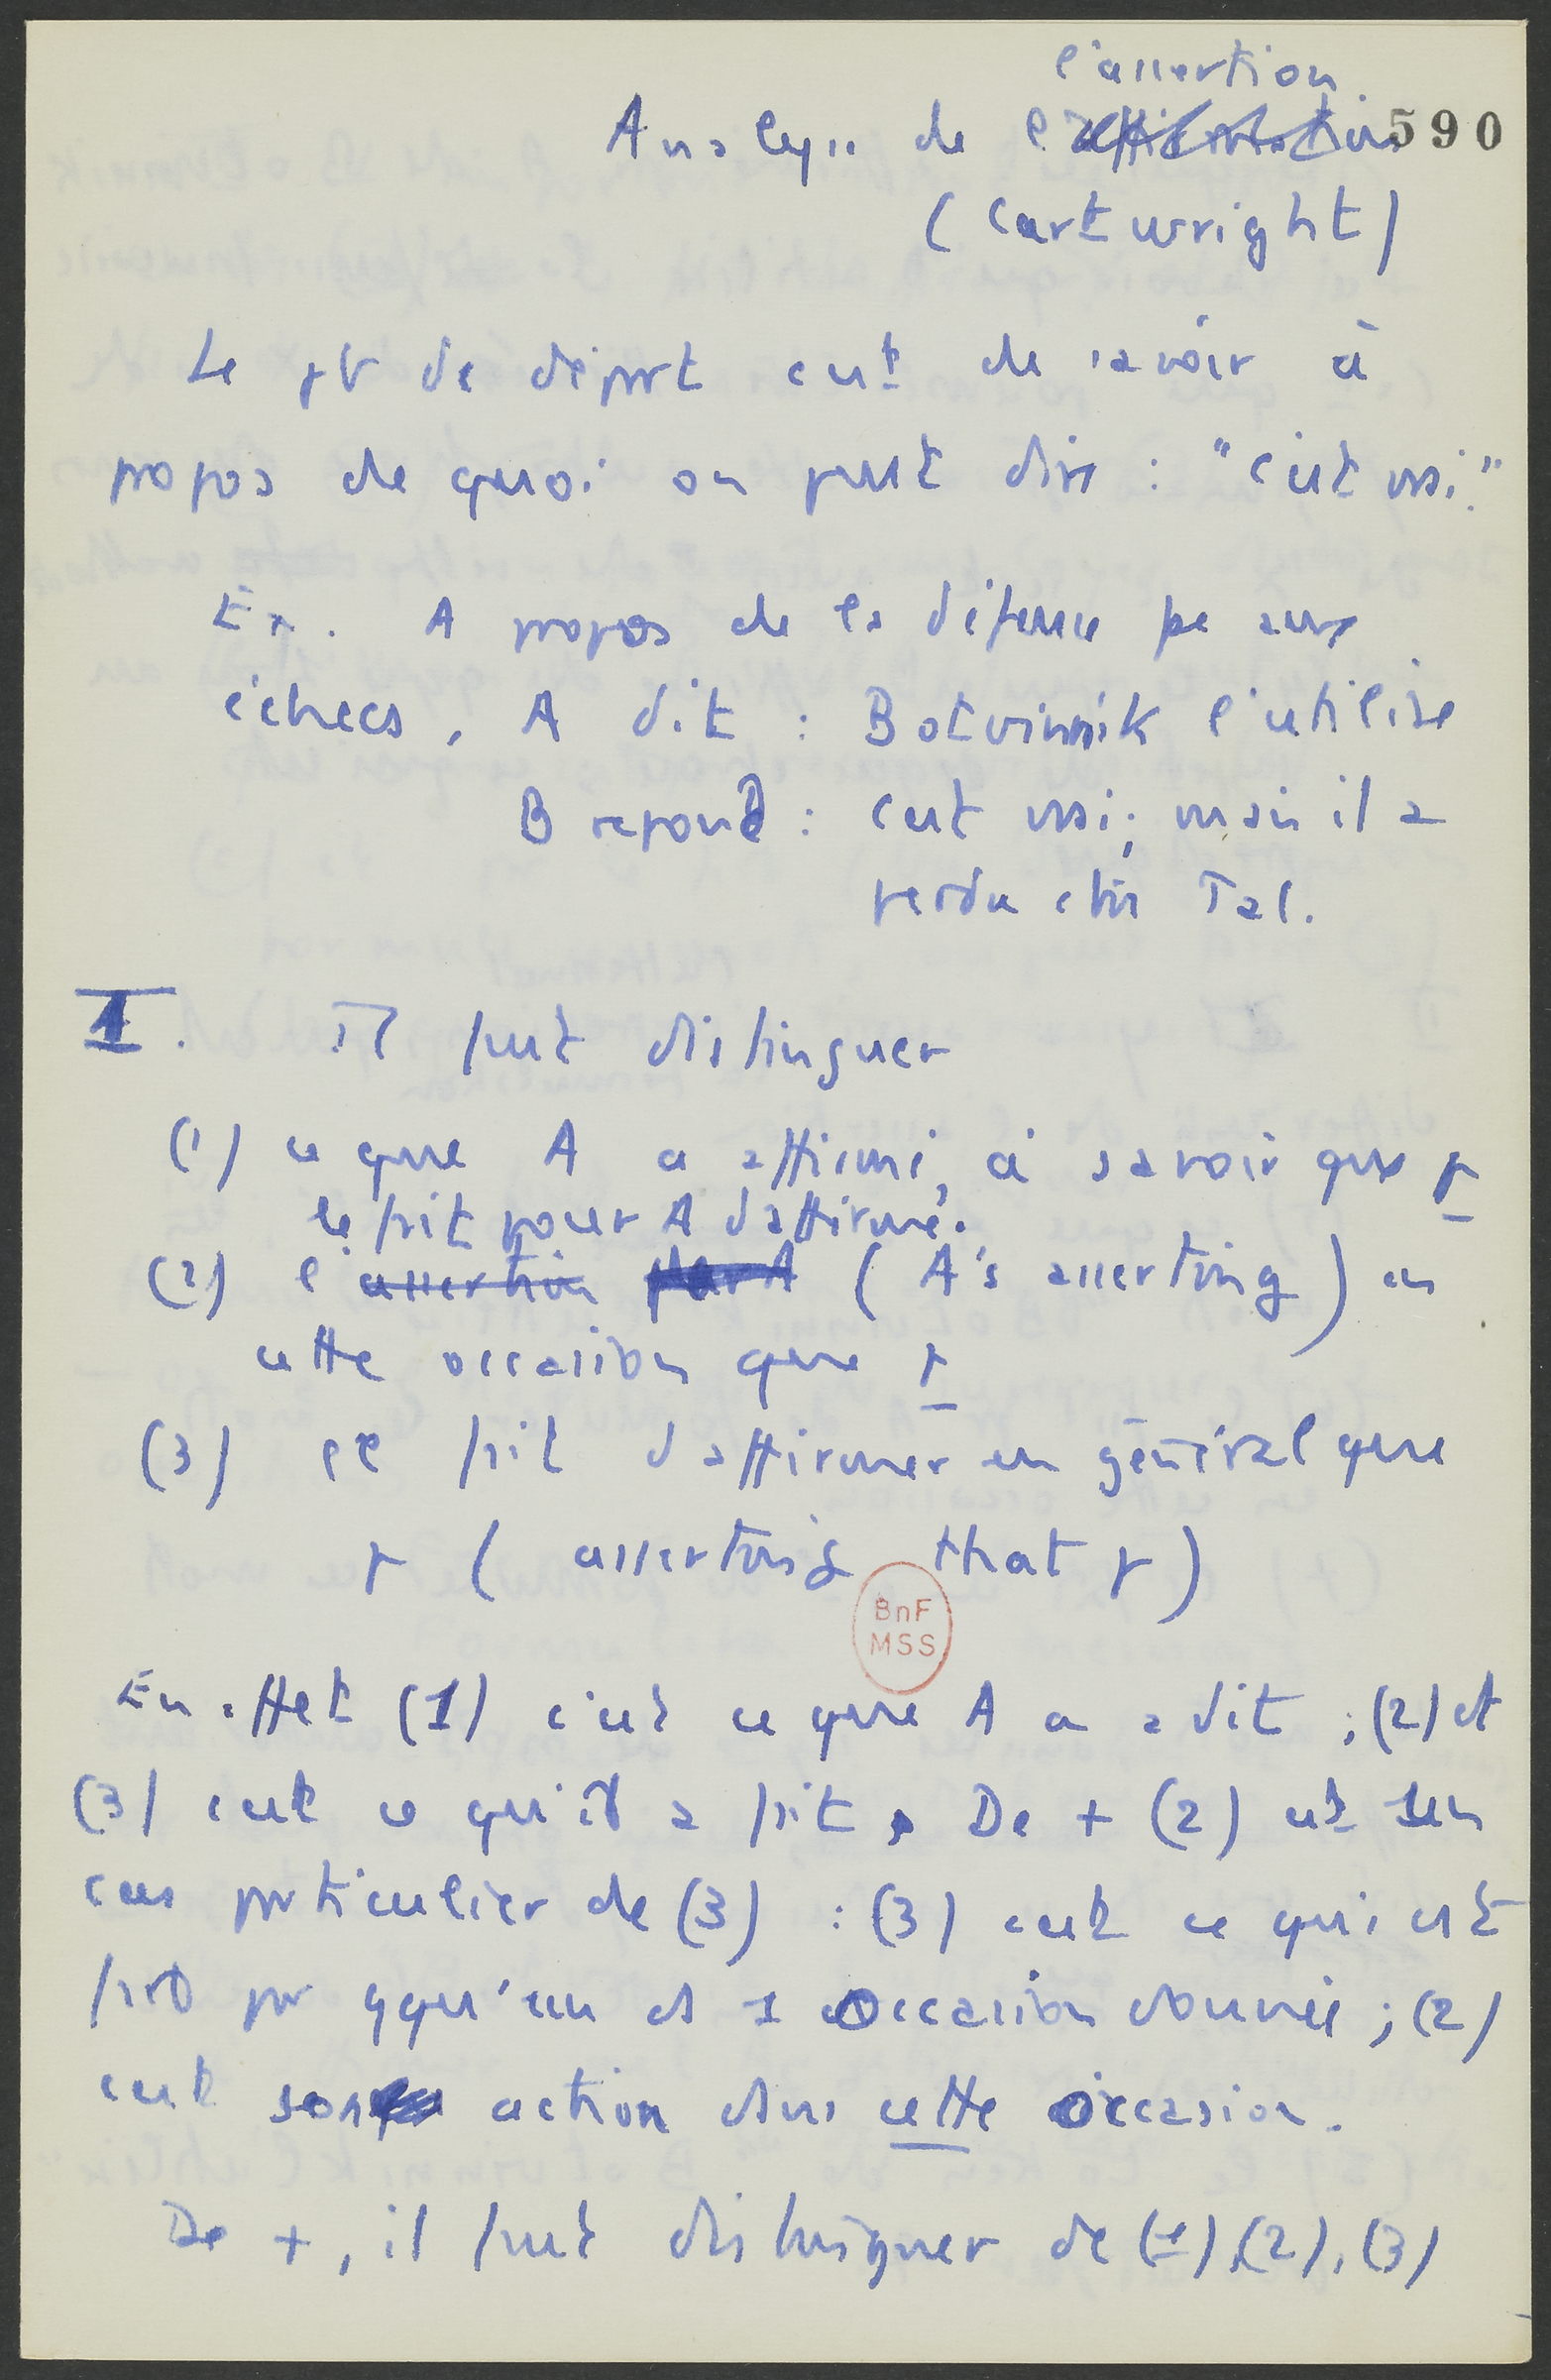 l'assertion
Analyse de l'affirmation 590
(Cartwright)
Le pt de départ est de savoir à
propos de quoi on peut dire : "c'est vrai."
Ex. A propos de la défense pe aux
échecs, A dit : Botvinnik l'utilise
B répond : c'est vrai ; mais il a
perdu ctre Tal.
I. Il faut distinguer
(1) ce que A a affirmé, à savoir que p
le fait pour A d'affirmer
(2) l'assertion par A (A's asserting) en
cette occasion que p
(3) le fait d'affirmer en général que
p (asserting that p)
BnF
MSS
En effet (1) c'est ce que A a dit ; (2) et
(3) c'est ce qu'il a fait. De + (2) est un
cas particulier de (3) : (3) c'est ce qui est
fait par qqu'un ds 1 occasion donnée ; (2)
c'est son action dans cette occasion.
De +, il faut distinguer de (1), (2), (3)